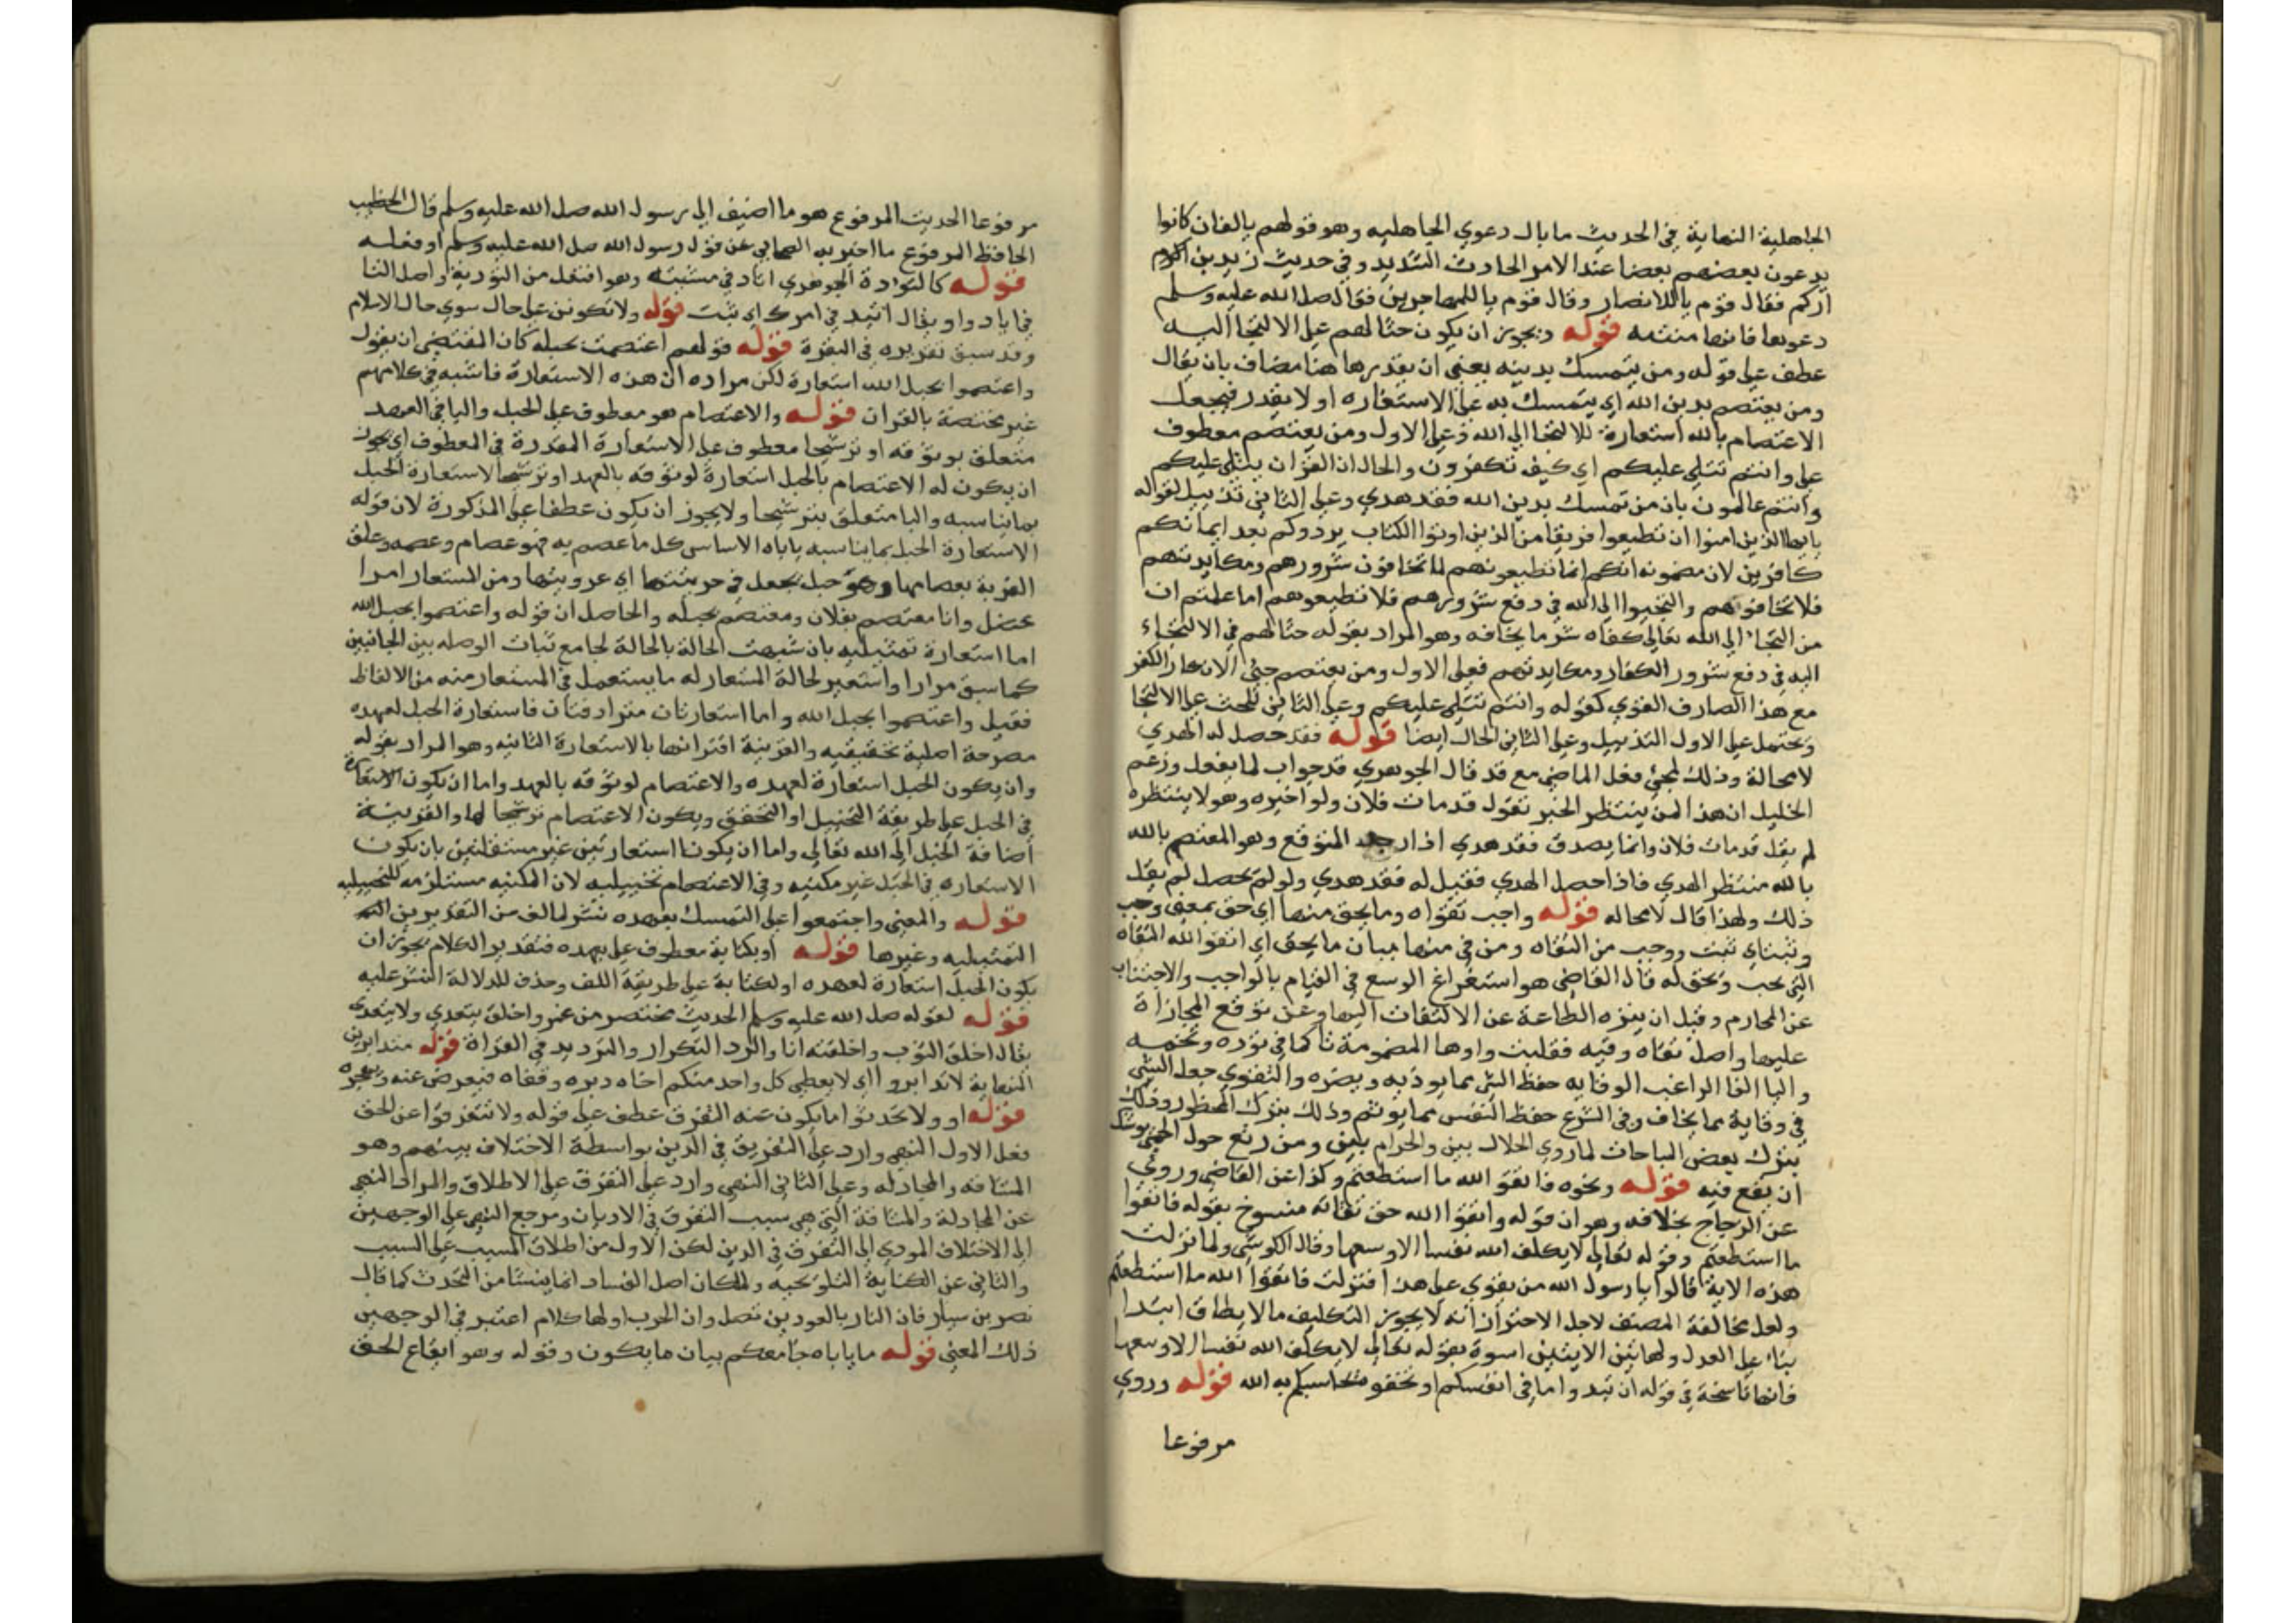 الجاهلية النهاية في الحديث ما بال دعوي الجاهليه وهو قولهم يالفلان كانوا
يدعون بعضهم بعضا عند الامر الحادث الشديد وفي حديث زيد بن ارقم
فقال قوم ياللانصار وقال قوم ياللمهاجرين فقال صلي الله عليه وسلم
دعوها فانها منتنه قوله ويجوز ان يكون حثا لهم علي الالتجا اليه
عطف علي قوله ومن يتمسك بدينه يعني ان يقدر ها هنا مضاف بان يقال
ومن يعتصم بدين الله اي يتمسك به علي الاستعاره او لا يقدر فيجعل
الاعتصام بالله استعارة للالتجا الي الله وعلي الاول ومن يعتصم معطوف
علي وانتم تتلي عليكم اي كيف تكفرون والحال ان القران يتلي عليكم
وانتم عالمون بان من تمسك بدين الله فقد هدي وعلي الثاني تذييل لقوله
يايها الذين امنوا ان تطيعوا فريقا من الذين اوتوا الكتاب يردوكم بعد ايمانكم
كافرين لان مضمونه انكم انما تطيعونهم لما تخافون شرورهم ومكايدتهم
فلا تخافوهم والتجيوا الي الله في دفع شرورهم فلا تطيعوهم اما علمتم ان
من التجا الي الله تعالي كفاه شر ما يخافه وهو المراد بقوله حثا لهم في الالتجاء
اليه في دفع شرور الكفار ومكايدتهم فعلي الاول ومن يعتصم جئ لانكار الكفر
مع هذا الصارف القوي كقوله وانتم تتلي عليكم وعلي الثاني للحث علي الالتجا
ويحتمل علي الاول التذييل وعلي الثاني الحال ايضا قوله فقد حصل له الهدي
لا محالة وذلك لمجئ فعل الماضي مع قد قال الجوهري قد جواب لما يفعل وزعم
الخليل ان هذا لمن ينتظر الخبر تقول قد مات فلان ولو اخبره وهو لا ينتظره
لم يقل قد مات فلان وانما يصدق فقد هدي اذا المتوقع وهو المعتصم بالله
بالله منتظر الهدي فاذا حصل الهدي فقيل له فقد هدي ولو لم يحصل لم يقل
ذلك ولهذا قال لا محاله قوله واجب تقواه وما يحق منها اي حق بمعني وجب
وثبت اي تثبت ووجب من التقاه ومن في منها بيان ما يحق اي اتقوا الله التقاه
التي يجب ويحق له قال القاضي هو استفراغ الوسع في القيام بالواجب والاجتناب
عن المحارم وقيل ان ينزه الطاعة عن الالتفات اليها وعن توقع المجازاة
عليها واصل تقاه وقيه فقلبت واوها المضمومة تا كما في تؤده وتخمه
واليا الفا الراغب الوقايه حفظ الشئ مما يوذيه ويضره والتقوي جعل الشي
في وقاية مما يخاف وفي الشرع حفظ النفس مما يوثم وذلك بترك المحظور وذلك
بترك بعض المباحات لما روي الحلال بين والحرام بين ومن رتع حول الحمي يوشك
ان يقع فيه قوله ونحوه فاتقوا الله ما استطعتم وكذا عن القاضي وروي
عن الزجاج بخلافه وهو ان قوله واتقوا الله حق تقاته منسوخ بقوله فاتقوا
ما استطعتم وقوله تعالي لا يكلف الله نفسا الا وسعها وقال الكواشي ولما نزلت
هذه الاية قالوا يا رسول الله من يقوي علي هذا فنزلت فاتقوا الله ما استطعتم
ولعل مخالفة المصنف لاجل الاحتراز انه لا يجوز التكليف مالا يطاق ابتدا
بناء علي العدل ولهاتين الايتين اسوة بقوله تعالي لا يكلف الله نفسا الا وسعها
فانها ناسخة في قوله ان تبدوا ما في انفسكم او تخفوه يحاسبكم به الله قوله وروي
مرفوعا
مرفوعا الحديث المرفوع هو ما اضيف الي رسول الله صلي الله عليه وسلم قال الخطيب
الحافظ المرفوع ما اخبر به الصحابي عن قول رسول الله صلي الله عليه وسلم او فعله
قوله كالتوادة الجوهري اتاد في مشيته وهو افتعل من التؤدة واصل التا
في اتاد واو يقال اتيد في امرك اي تثبت قوله ولا تكونن علي حال سوي حال الاسلام
وقد سبق تقريره في البقرة قوله قولهم اعتصمت بحبله كان المقتضي ان يقول
واعتصموا بحبل الله استعارة لكن مراده ان هذه الاستعارة فاشيه في كلامهم
غير مختصة بالقران قوله والاعتصام هو معطوف علي الحبل واليا في العهد
متعلق بوثوقه او ترشيحا معطوف علي الاستعارة المقدرة في المعطوف اي يجوز
ان يكون له الاعتصام بالحبل استعارة لوثوقه بالعهد او ترشيحا لاستعارة الحبل
بما يناسبه والبا متعلق بترشيحا ولا يجوز ان يكون عطفا علي المذكورة لان قوله
الاستعارة الحبل بما يناسبه ياباه الاساس كل ما عصم به فهو عصام وعصمه وعلق
القربة بعصامها وهو حبل يجعل في خربتيها اي عروتيها ومن المستعار امرا
عتضل وانا معتصم بفلان ومعتصم بحبله والحاصل ان قوله واعتصموا بحبل الله
اما استعارة تمثيليه بان شبهت الحالة بالحالة لجامع ثبات الوصله بين الجانبين
كما سبق مرارا واستعير لحالة المستعار له ما يستعمل في المستعار منه من الالفاظ
فقيل واعتصموا بحبل الله واما استعارتان مترادفتان فاستعارة الحبل لعهده
مصرحة اصلية تحقيقيه والقرينة اقترانها بالاستعارة الثانيه وهو المراد بقوله
وان يكون الحبل استعارة لعهده والاعتصام لوثوقه بالعهد واما ان يكون الاستعارة
في الحبل علي طريقة التخييل او التحقق ويكون الاعتصام ترشيحا لها والقرينة
اضافة الحبل الي الله تعالي واما ان يكونا استعارتين غير مستقلتين بان يكون
الاستعاره في الحبل غير مكنيه وفي الاعتصام تخييليه لان المكنيه مستلزمه للتخييليه
قوله والمعني واجتمعوا علي التمسك بعهده نشر لما لف من التقديرين
التمثيليه وغيرها قوله او بكتابة معطوف علي بعهده فتقدير الكلام يجوز ان
يكون الحبل استعارة لعهده او لكتابة علي طريقة اللف وحذف للدلالة النشر عليه
قوله لقوله صلي الله عليه وسلم الحديث مختصر من واخلق يتعدي ولا يتعدي
يقال اخلق الثوب واخلقته انا والرد التكرار والترديد في القراة قوله متدابرين
النهاية لا تدابروا اي لا يعطي كل واحد منكم اخاه دبره وقفاه فيعرض عنه ويهجره
قوله او ولا تحدثوا ما يكون عنه التفرق عطف علي قوله ولا تتفرقوا عن الحق
فعلي الاول النهي وارد علي التفريق في الدين بواسطة الاختلاف بينهم وهو
المشاقه والمجادله وعلي الثاني النهي وارد علي التفرق علي الاطلاق والمراد النهي
عن المجادلة والمشاقة التي هي سبب التفرق في الاديان ومرجع النهي علي الوجهين
الي الاختلاف المودي الي التفرق في الدين لكن الاول من اطلاق المسبب علي السبب
والثاني عن الكناية التلويحيه ولما كان اصل الفساد انما ينشا من التحدث كما قال
نصر بن سيار فان النار بالعودين تصل وان الحرب اولها كلام اعتبر في الوجهين
ذلك المعني قوله ما ياباه جامعكم بيان ما يكون وقوله وهو اتباع الحق